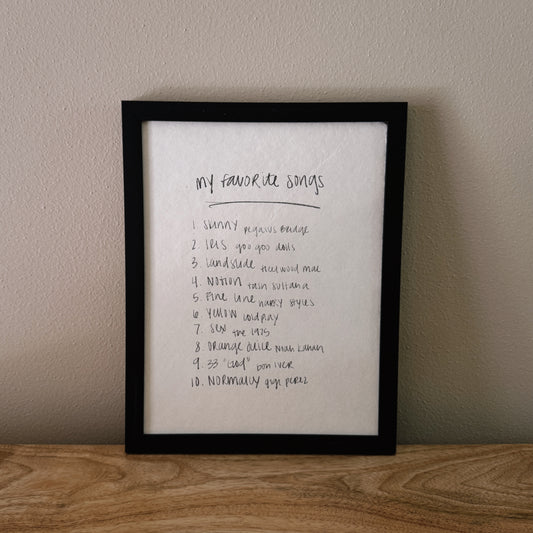 my favorite songs
1. Skinny pegasus Bridge
2. IRIS goo goo dolls
3. Landslide fleetwood mac
4. NOTION tash sultana
5. Fine Line harry styles
6. Yellow coldplay
7. Sex the 1975
8. Orange Juice Noah Kahan
9. 33 "GOD" bon iver
10. NORMALLY gigi perez